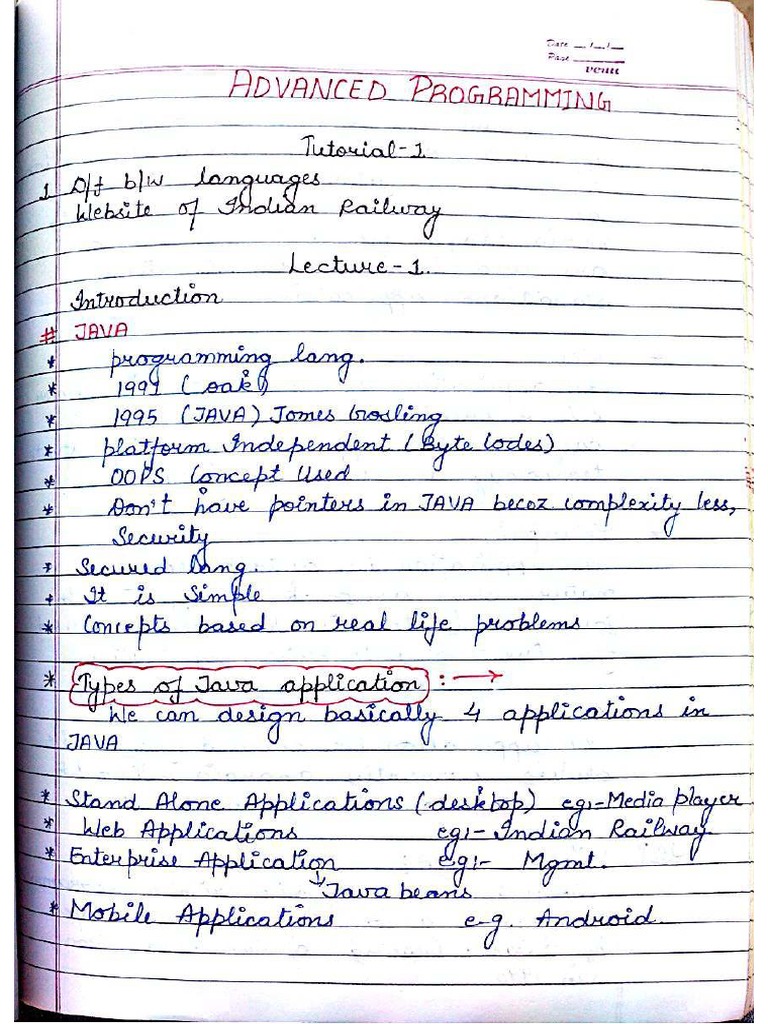 Date __/__/__
Page ______
ADVANCED PROGRAMMING
Tutorial-1
1 D/f b/w languages
Website of Indian Railway
Lecture-1.
Introduction
# JAVA
* programming lang.
* 1991 (oak)
* 1995 (JAVA) James Gosling
* platform Independent (Byte Codes)
* OOPS Concept Used
* Don't have pointers in JAVA becoz complexity less,
Security
* Secured lang.
* It is Simple
* Concepts based on real life problems
* Types of Java application :- →
We can design basically 4 applications in
JAVA
* Stand Alone Applications (desktop) eg:-Media player
* Web Applications eg:- Indian Railway
* Enterprise Application eg:- Mgmt.
↳ Java beans
* Mobile Applications e.g. Android